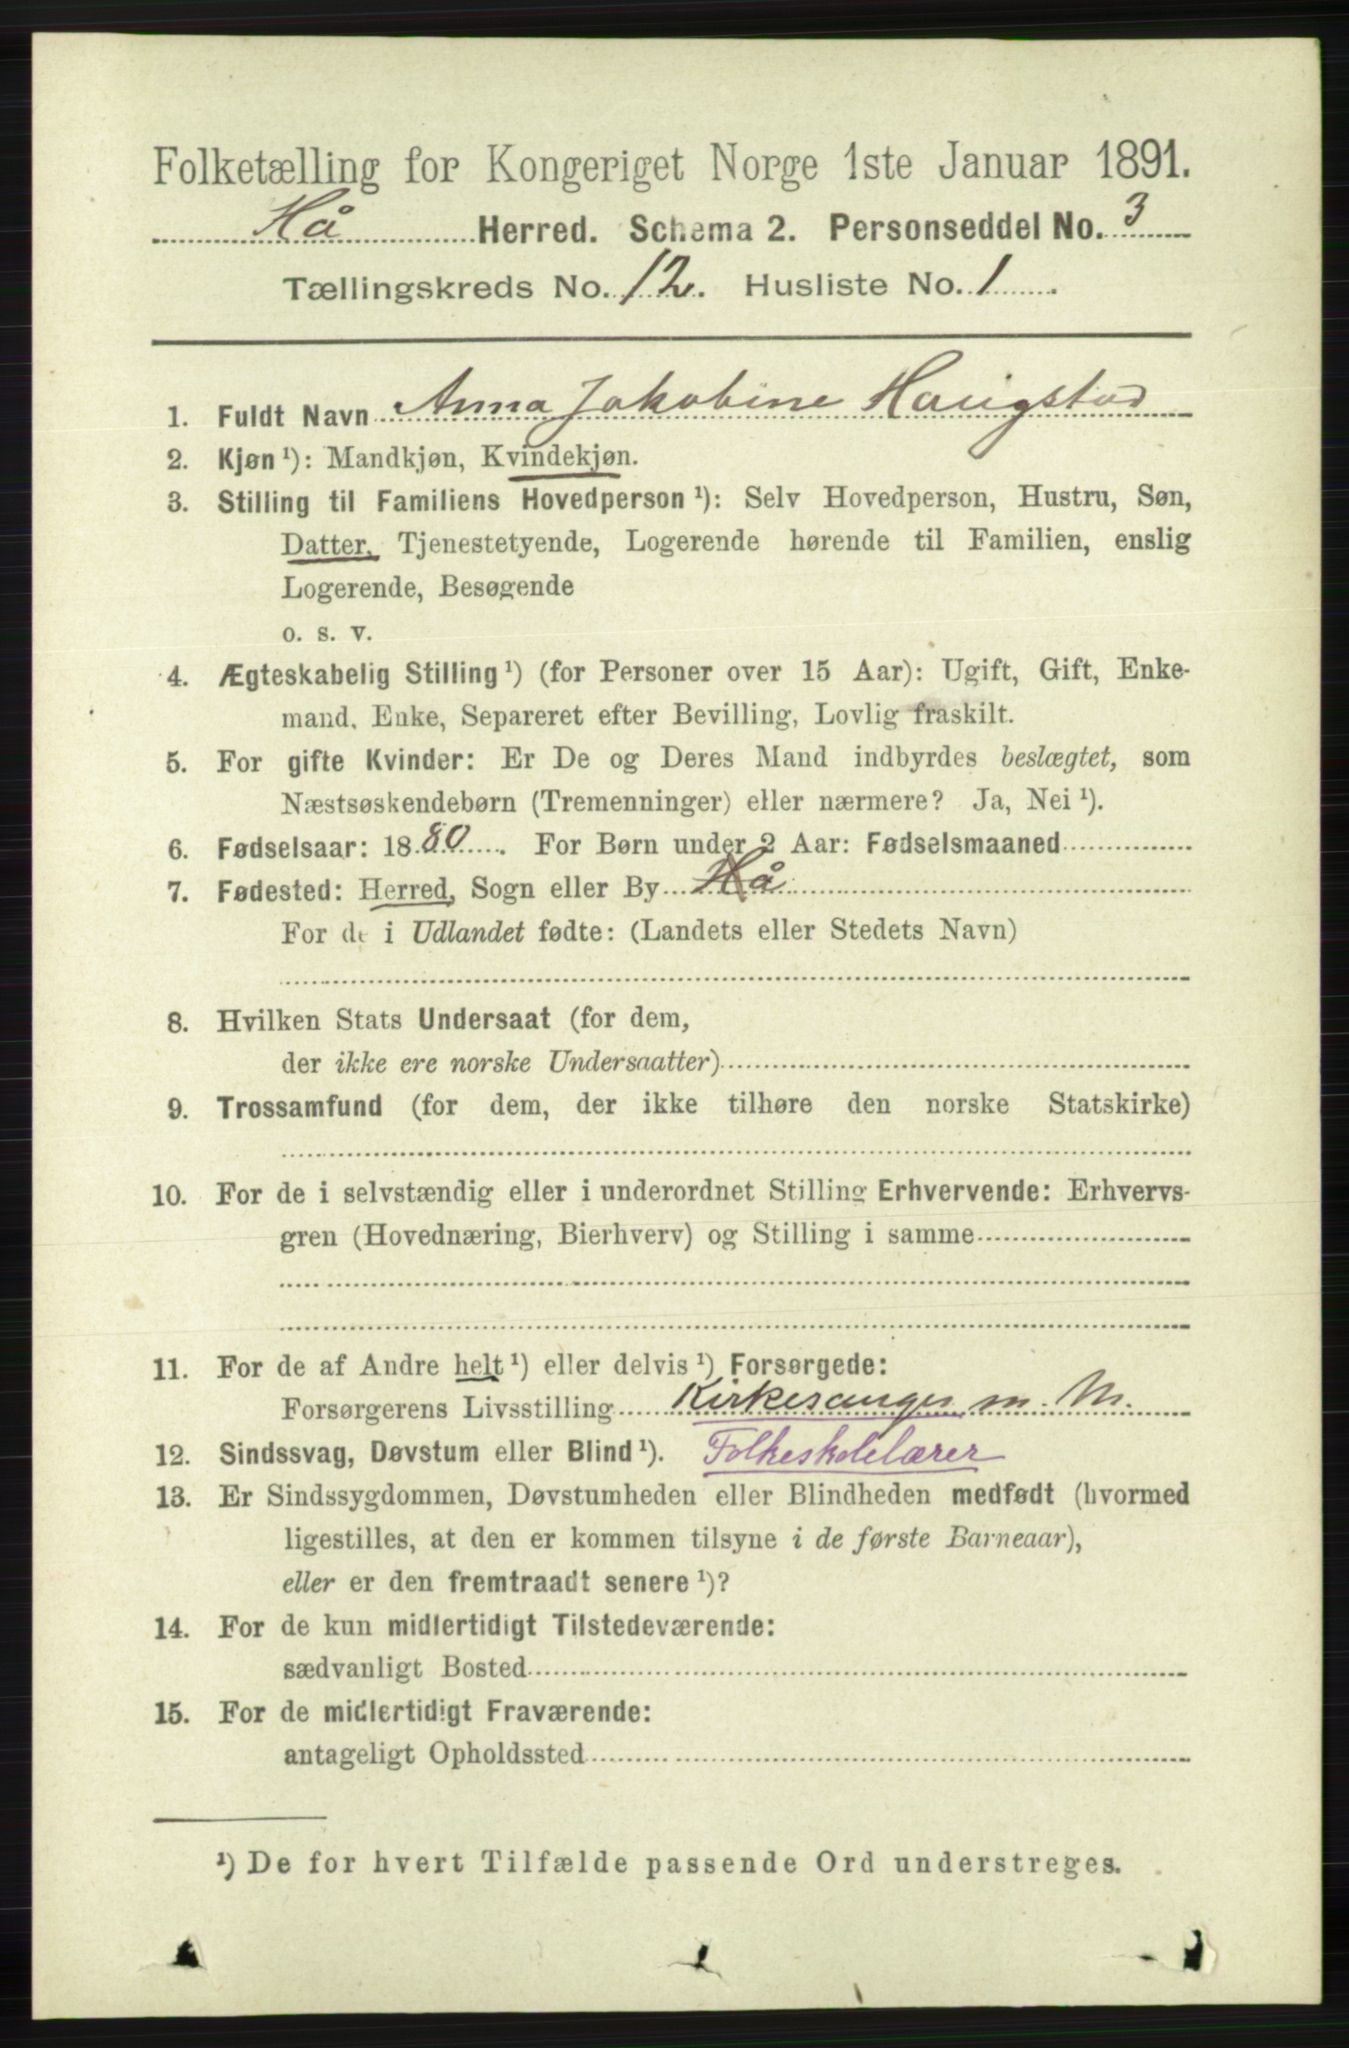 Folketælling for Kongeriget Norge 1ste Januar 1891.
Hå Herred. Schema 2. Personseddel No. 3
Tællingskreds No. 12. Husliste No. 1.
1. Fuldt Navn Anna Jakobine Haugstad
2. Kjøn ¹): Mandkjøn, Kvindekjøn.
3. Stilling til Familiens Hovedperson ¹): Selv Hovedperson, Hustru, Søn,
Datter, Tjenestetyende, Logerende hørende til Familien, enslig
Logerende, Besøgende
o. s. v.
4. Ægteskabelig Stilling ¹) (for Personer over 15 Aar): Ugift, Gift, Enke-
mand, Enke, Separeret efter Bevilling, Lovlig fraskilt.
5. For gifte Kvinder: Er De og Deres Mand indbyrdes beslægtet, som
Næstsøskendebørn (Tremenninger) eller nærmere? Ja, Nei ¹).
6. Fødselsaar: 1880. For Børn under 2 Aar: Fødselsmaaned
7. Fødested: Herred, Sogn eller By Hå
For de i Udlandet fødte: (Landets eller Stedets Navn)
8. Hvilken Stats Undersaat (for dem,
der ikke ere norske Undersaatter)
9. Trossamfund (for dem, der ikke tilhøre den norske Statskirke)
10. For de i selvstændig eller i underordnet Stilling Erhvervende: Erhvervs-
gren (Hovednæring, Bierhverv) og Stilling i samme
11. For de af Andre helt ¹) eller delvis ¹) Forsørgede:
Forsørgerens Livsstilling Kirkesanger m. M.
12. Sindssvag, Døvstum eller Blind ¹). Folkeskolelærer
13. Er Sindssygdommen, Døvstumheden eller Blindheden medfødt (hvormed
ligestilles, at den er kommen tilsyne i de første Barneaar),
eller er den fremtraadt senere ¹)?
14. For de kun midlertidigt Tilstedeværende:
sædvanligt Bosted
15. For de midlertidigt Fraværende:
antageligt Opholdssted
¹) De for hvert Tilfælde passende Ord understreges.